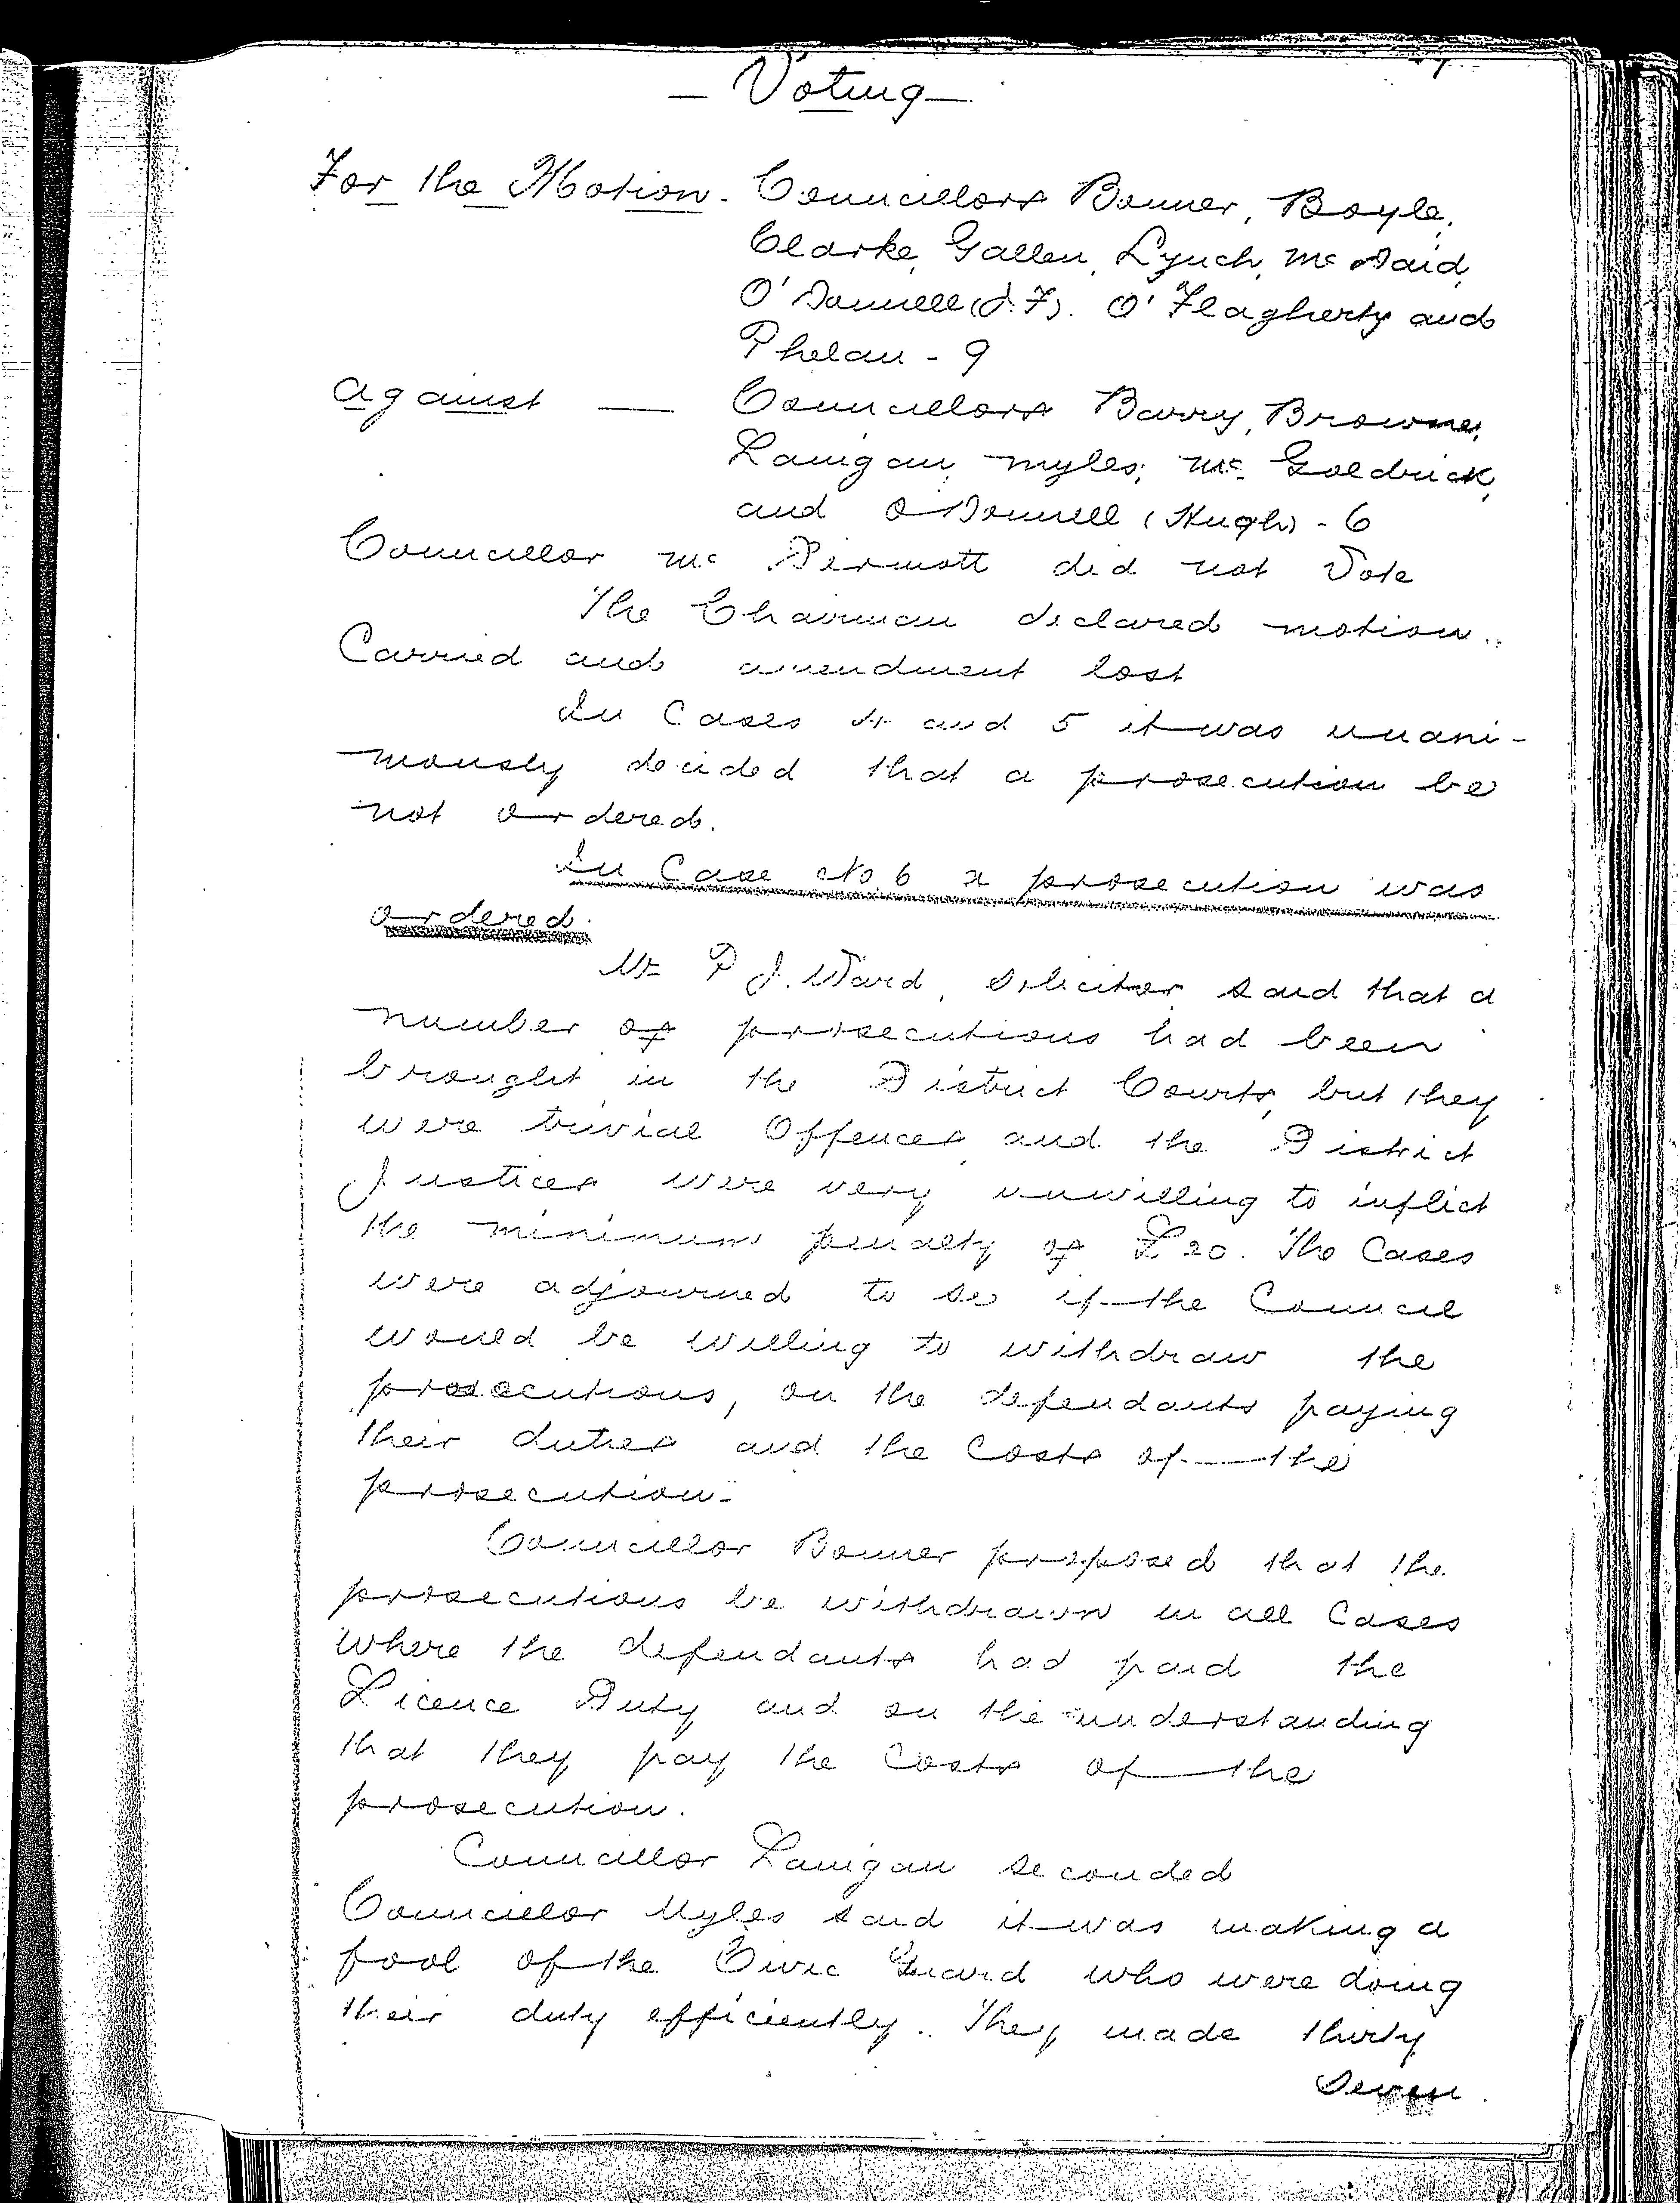 — Voting —
For the Motion - Councillors Bonner, Boyle,
Clarke, Gallen, Lynch, Mc Daid,
O'Donnell (J.F). O'Flagherty and
Phelan - 9
against — Councillors Barry, Browne,
Lanigan, Myles, Mc Goldrick,
and O'Donnell (Hugh) - 6
Councillor Mc Dermott did not Vote
The Chairman declared motion
Carried and amendment lost
In Cases 4 and 5 it was unani-
mously decided that a prosecution be
not ordered.
In Case No. 6 a prosecution was
ordered.
Mr P J. Ward, Solicitor said that a
number of prosecutions had been
brought in the District Courts, but they
were trivial Offences, and the District
Justices were very unwilling to inflict
the minimum penalty of £20. The Cases
were adjourned to see if the Council
would be willing to withdraw the
prosecutions, on the defendants paying
their duties and the Costs of the
prosecution.
Councillor Bonner proposed that the
prosecutions be withdrawn in all Cases
where the defendants had paid the
Licence Duty and on the understanding
that they pay the Costs of the
prosecution.
Councillor Lanigan seconded
Councillor Myles said it was making a
fool of the Civic Guard who were doing
their duty efficiently. They made thirty
seven.